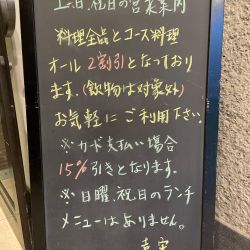 土、日、祝日の営業案内
料理全品とコース料理
オール2割引となっており
ます。(飲物は対象外)
お気軽にご利用下さい。
※カード支払い場合
15%引きとなります。
※日曜、祝日のランチ
メニューはありません。